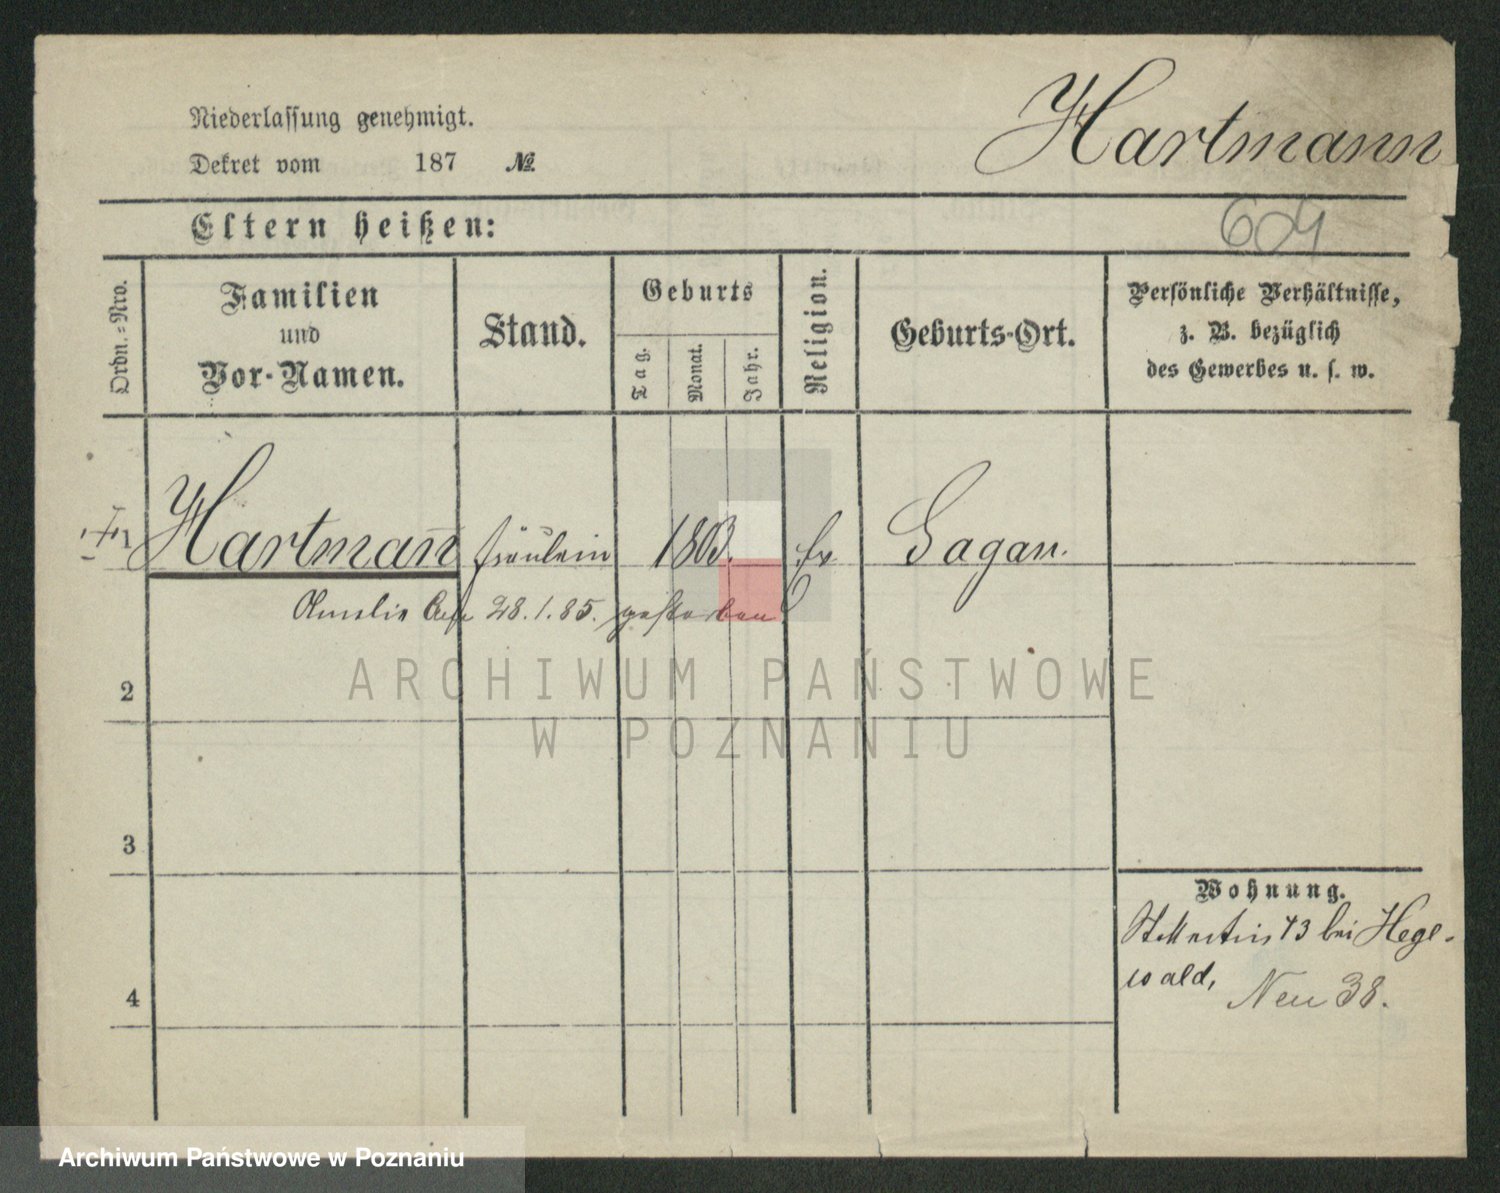 Hartmann
Niederlassung genehmigt.
Dekret vom 187 №
Eltern heißen:
604
Ordn.=Nro.
Familien
und
Vor-Namen.
Stand.
Geburts
Tag.
Monat.
Jahr.
Religion.
Geburts-Ort.
Persönliche Verhältnisse,
z. B. bezüglich
des Gewerbes u. s. w.
1 Hartman̅ Fräulein 1803. Ev Sagan.
Amalie 28.1.85. gestorben
ARCHIWUM PAŃSTWOWE
W POZNANIU
2
3
4
Wohnung.
13 bei Hege-
wald, Neu 38.
Archiwum Państwowe w Poznaniu